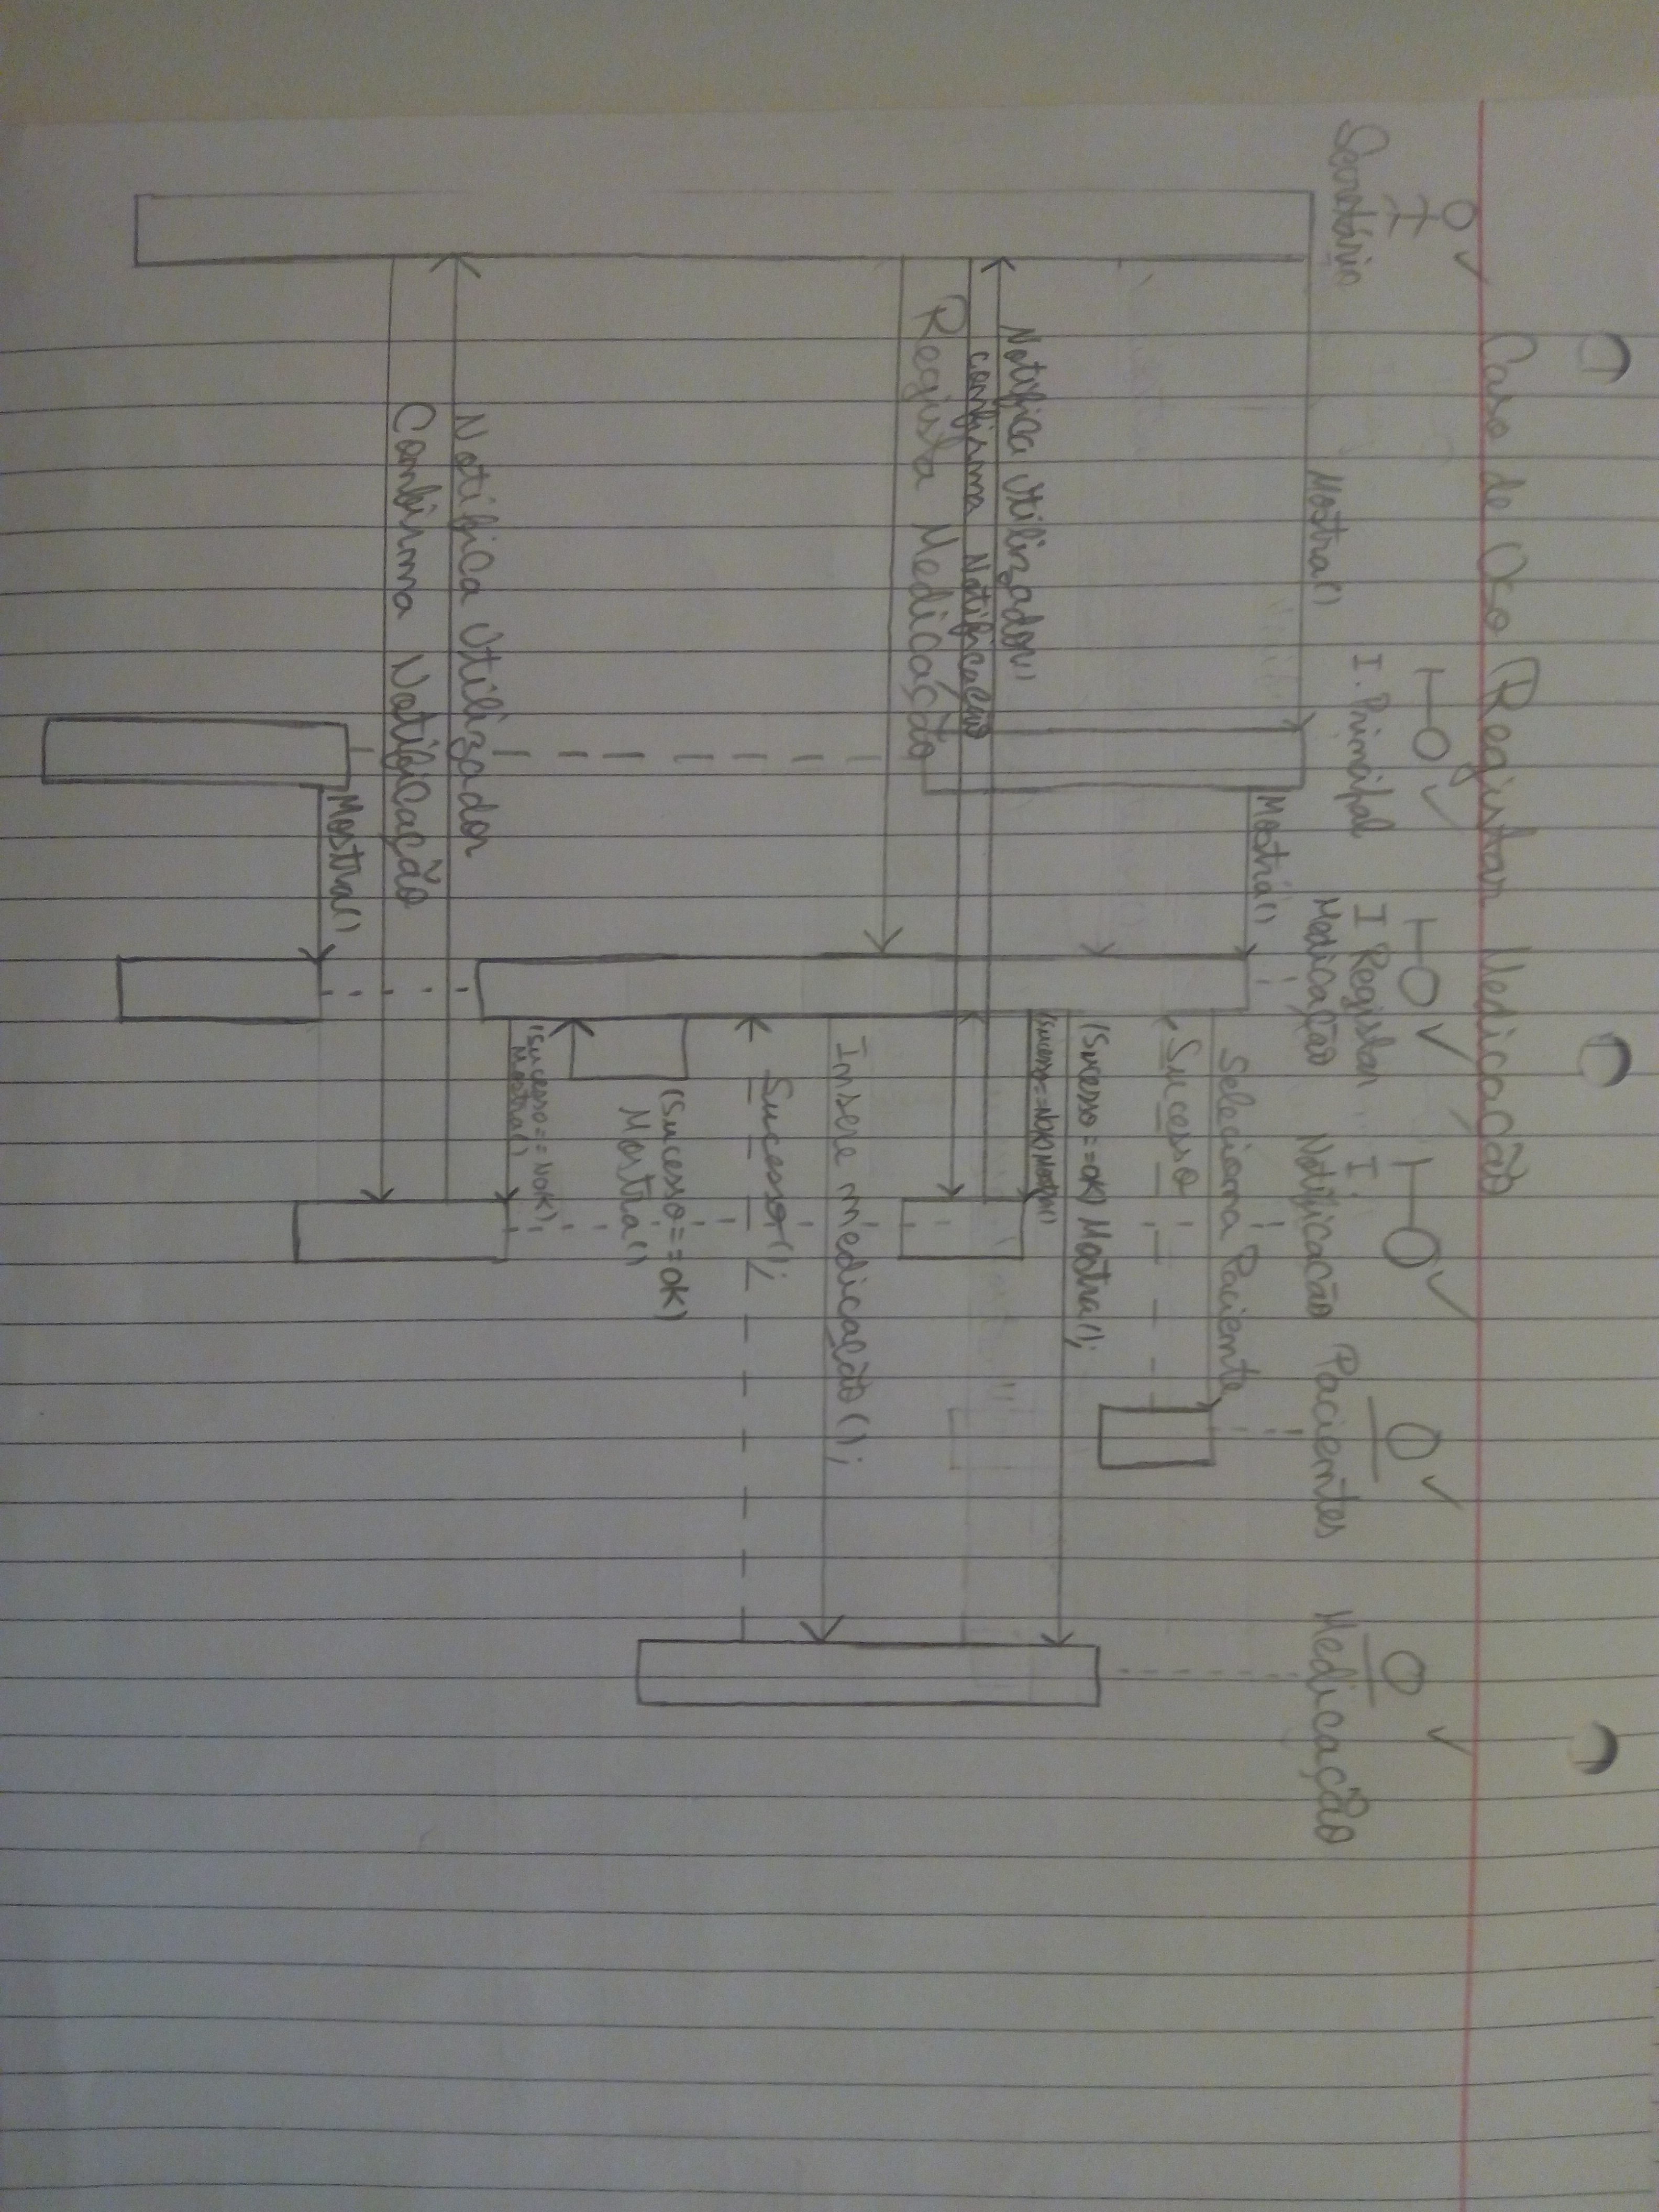 Caso de Uso Registar Medicação
Secretário
I. Principal
I Registar
Medicação
I.
Notificação
Pacientes
Medicação
Mostra()
Mostra()
Seleciona Paciente
Sucesso
(Sucesso==OK) Mostra();
(Sucesso==NOK) Mostra()
Notifica Utilizador
confirma Notificação
Regista Medicação
Insere medicação();
Sucesso();
(Sucesso==OK)
Mostra()
(Sucesso==NOK)
Mostra()
Notifica Utilizador
Confirma Notificação
Mostra()